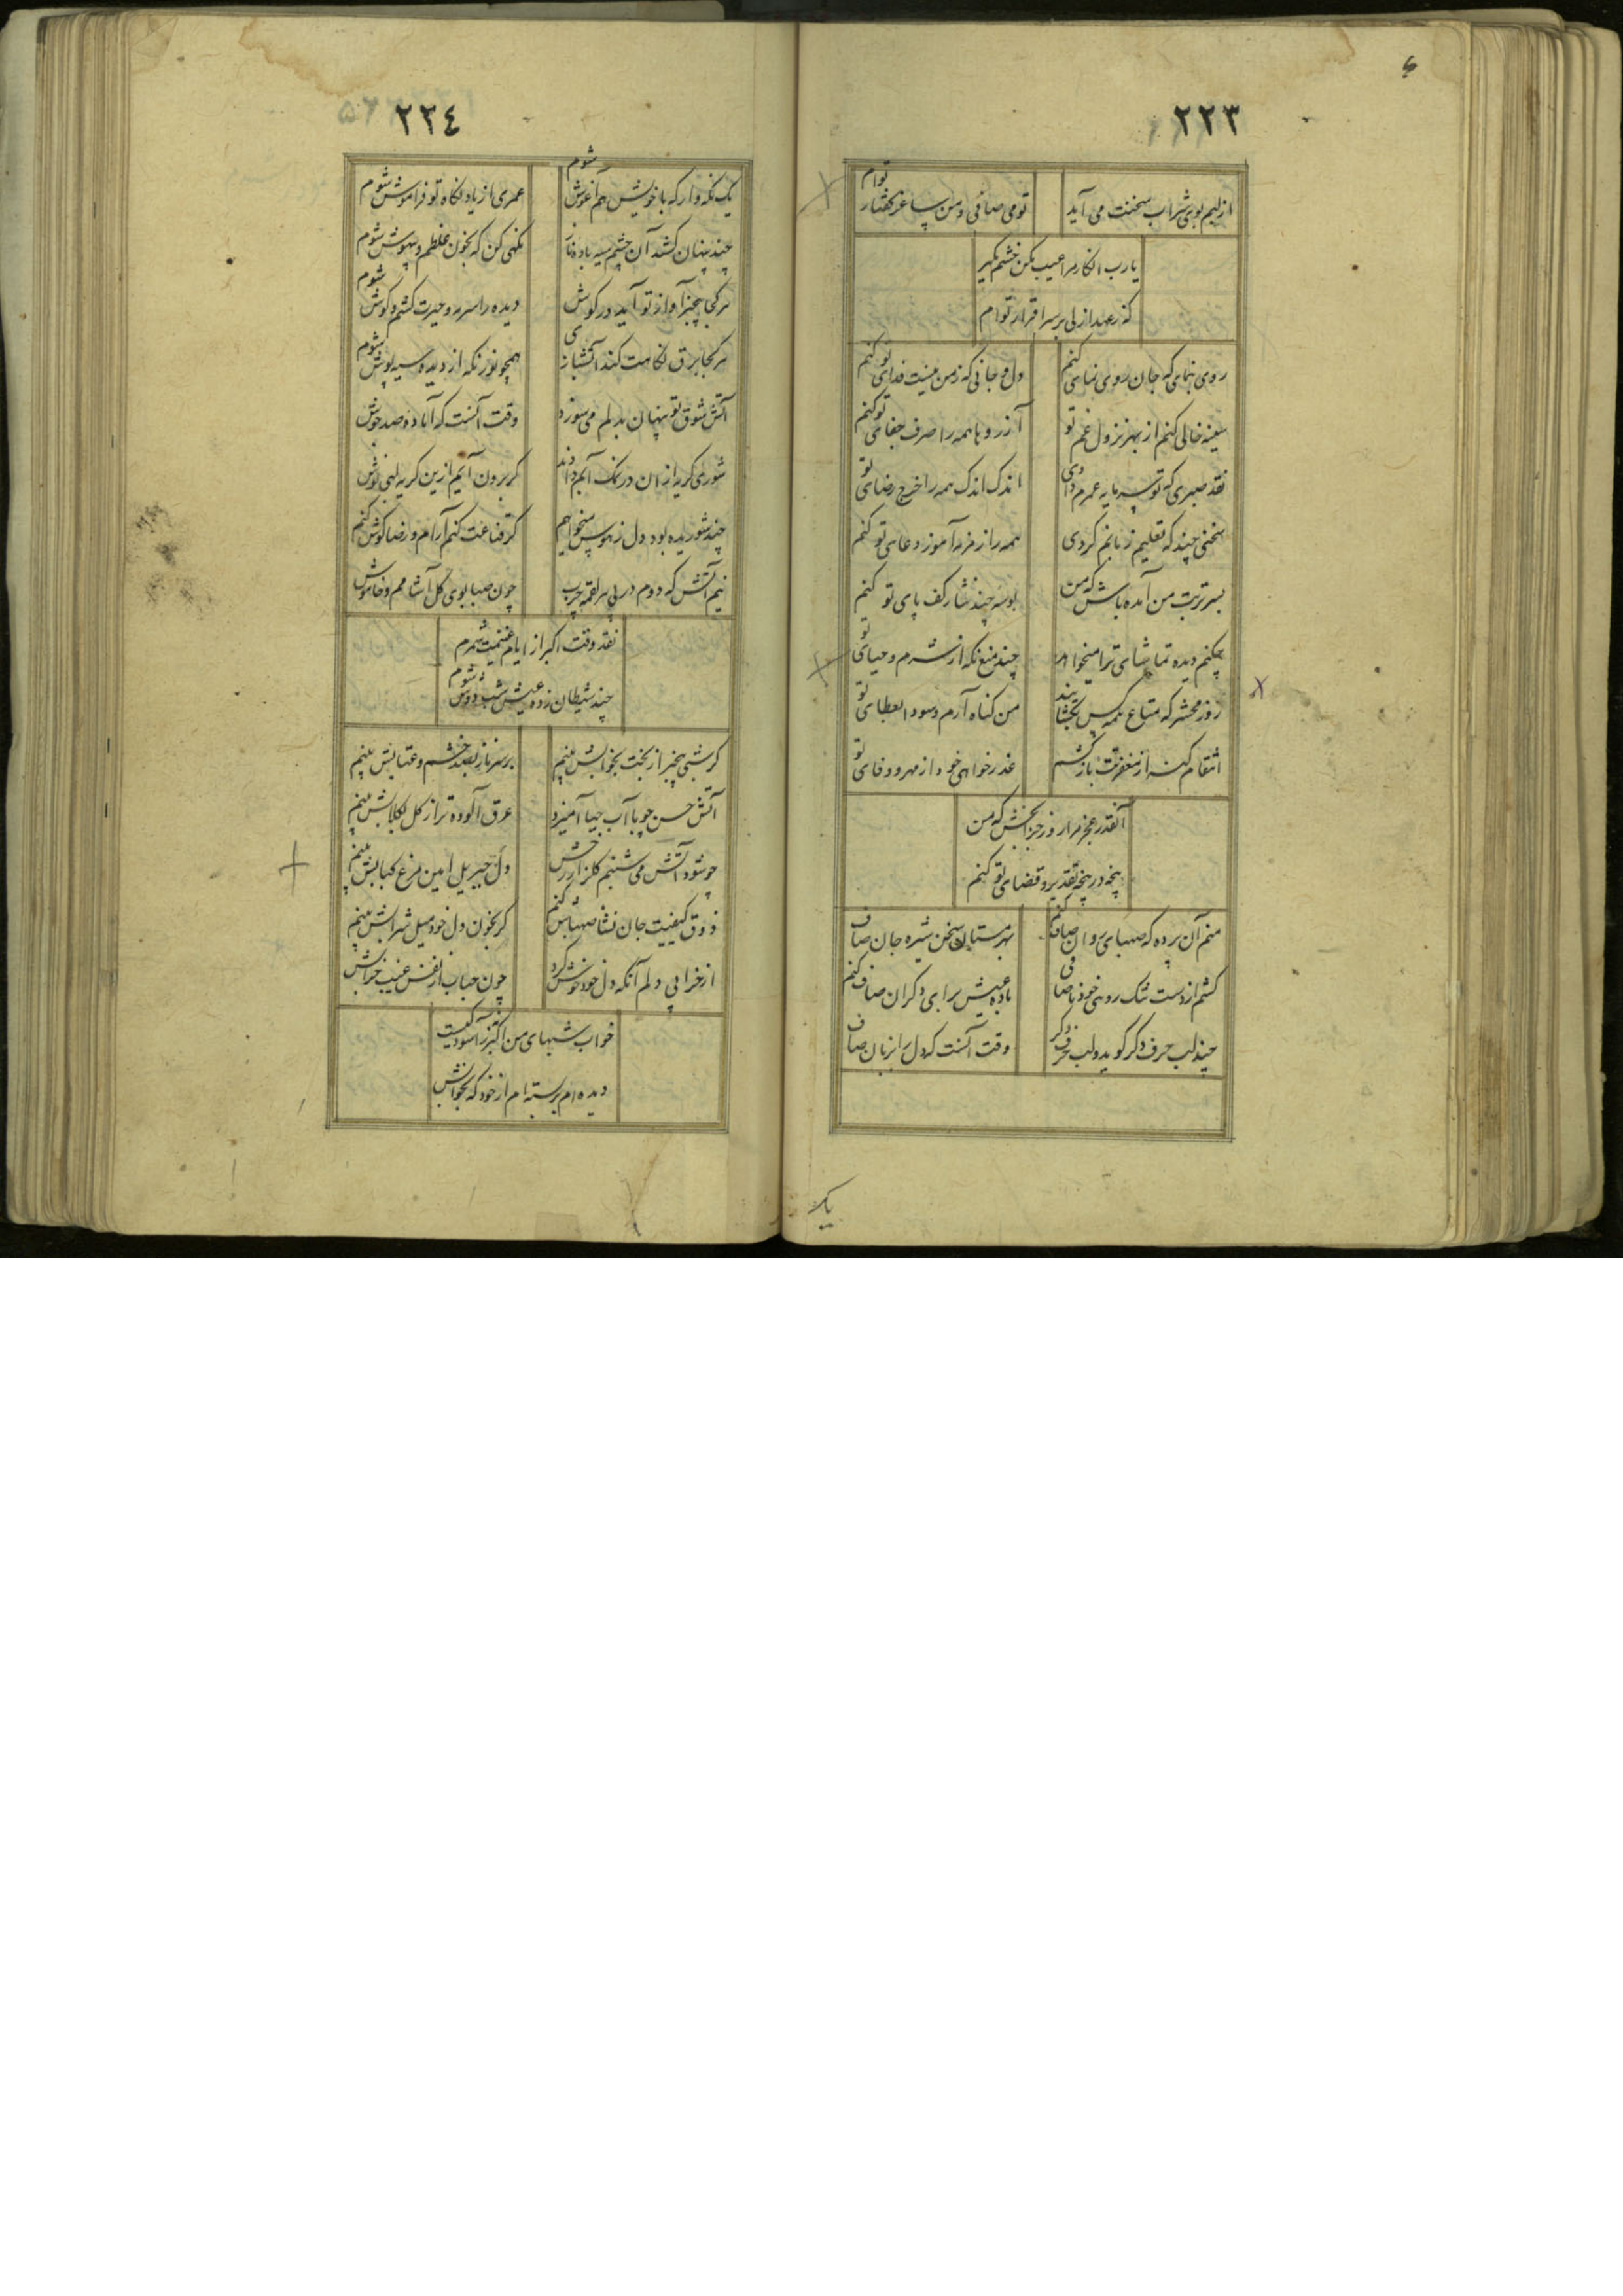 ٢٢٣
از لبم بوی شراب سخنت می آید
تو می صافی و من ساغر گفتار توام
یارب انکار مرا عیب مکن خشم مگیر
که ز عهد ازلی بر سر اقرار توام
روی بنمای که جان روی نمای کنم
دل و جانی که ز من نیست فدای تو کنم
سینه خالی کنم از بهر نزول غم تو
آرزوها همه را صرف جفای تو کنم
نقد صبری که تو سرمایه عمرم دادی
اندک اندک همه را خرج رضای تو
سخنی چند که تعلیم زبانم کردی
همه را زمزمه آموز دعای تو کنم
بسر تربت من آمده باش که من
بوسه چند نثار کف پای تو کنم
چکنم دیده تماشای ترا میخواهد
چند منع نگه از شرم و حیای تو
روز محشر که متاع همه کس بگشایند
من گناه آرم و سودا بعطای تو
انتقام گنه از مغفرتت باز کشم
عذر خواهی خود از مهر و وفای تو
آنقدر عجز مرا روز جزا بخش که من
پنجه در پنجه تقدیر و قضای تو کنم
منم آن پرده که صهبای روان صاف کنم
بهر مستان سخن شیره جان صاف
کشم از دست تنک روی خود ناصافی
باده عیش برای دگران صاف کنم
چند لب حرف دگر گوید و لب حرف دگر
وقت آنست که دل را بزبان صاف
یک
٢٢٤
یک نگه وار که با خویش هم آغوش شوم
عمری از یاد نگاه تو فراموش شوم
چند پنهان کشد آن چشم سیه باده ناز
نگهی کن که بخون غلطم و بیهوش شوم
هر کجا چیز آواز تو آید در گوش
دیده را سرمه حیرت کشم و گوش شوم
هر کجا برق نگاهت کند آتشبازی
همچو نور نگه از دیده سیه پوش شوم
آتش شوق تو پنهان بدلم می سوزد
وقت آنست که آماده صد جوش
شوری گریه از آن در نمک آبم دادند
گر برون آیم ازین گریه لبی نوش
چند شوریده بود دل ز هوس میخواهم
گر قناعت کنم آرام و رضا گوش کنم
نیم آتش که دوم در پی هر لقمه چرب
چون صبا بوی گل آشامم و خاموش
نقد وقت اکبر از ایام غنیمت شمرم
چند شیطان زده عیش شب دوش شوم
گر شبی بیخبر از بخت بخوابش بینم
بر سر ناز بصد خشم و عتابش بینم
آتش حسن چو با آب حیا آمیزد
عرق آلوده تر از گل بگلابش بینم
چو شود آتش می شبنم گلزار رخش
دل جبریل امین مرغ کبابش بینم
ذوق کیفیت جان نشأ صهباش کنم
گر بخون دل خود میل شرابش بینم
از خرابی دلم آنکه دل خود خوش کرد
چون حباب از نفس غیب خرابش
خواب شبهای من اکبر ز آسودگیست
دیده ام بر بسته ام از خود که بخوابش